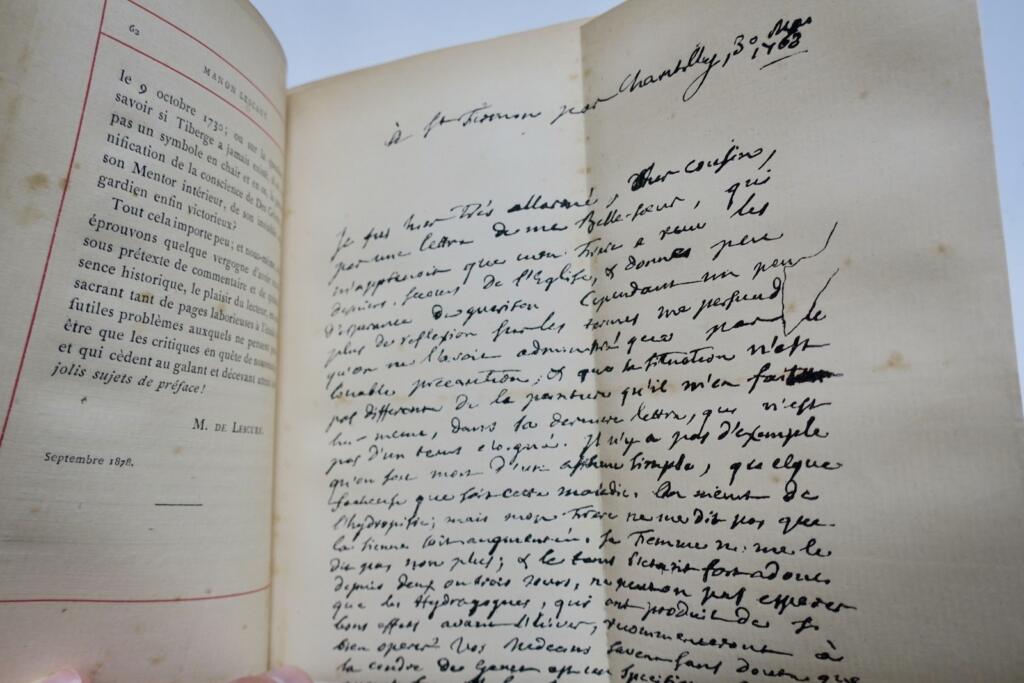 62
MANON LESCAUT
le 9 octobre 1730; ou sur la
savoir si Tiberge a jamais
pas un symbole en chair et en os, la
nification de la conscience de Des
son Mentor intérieur, de son
gardien enfin victorieux?
Tout cela importe peu; et nous-mêmes
éprouvons quelque vergogne d'avoir
sous prétexte de commentaire et de
sence historique, le plaisir du lecteur, en
sacrant tant de pages laborieuses à
futiles problèmes auxquels ne pensent
être que les critiques en quête de
et qui cèdent au galant et décevant
jolis sujets de préface!
M. DE LESCURE.
Septembre 1878.
à St Firmin par Chantilly, 30
1763
Je fus hier très allarmé, cher cousin,
par une lettre de ma Belle-sœur, qui
m'apprenoit que mon Frere a reçu les
derniers secours de l'Eglise, & donnes peu
d'esperance de guerison Cependant un peu
plus de reflexion sur les termes me persuad
qu'on ne l'avoit administré que par
louable précaution, & que la situation n'est
pas differente de la peinture qu'il m'en
lui-même, dans sa derniere lettre, qui n'est
pas d'un tems eloigné. Il n'y a pas d'exemple
qu'on soit mort d'un asthme simple, quelque
que soit cette maladie. On meurt de
l'hydropisie; mais mon Frere ne me dit pas que
la sienne soit augmentée. Sa Femme ne me le
dit pas non plus; & le tems s'etant fort adouci
depuis deux ou trois jours, ne peut on pas esperer
que les Hydragogues, qui ont produit de si
bons effets avant l'hiver, recommenceront à
bien operer? Vos Medecins savent sans doute que
la cendre de Genet est un